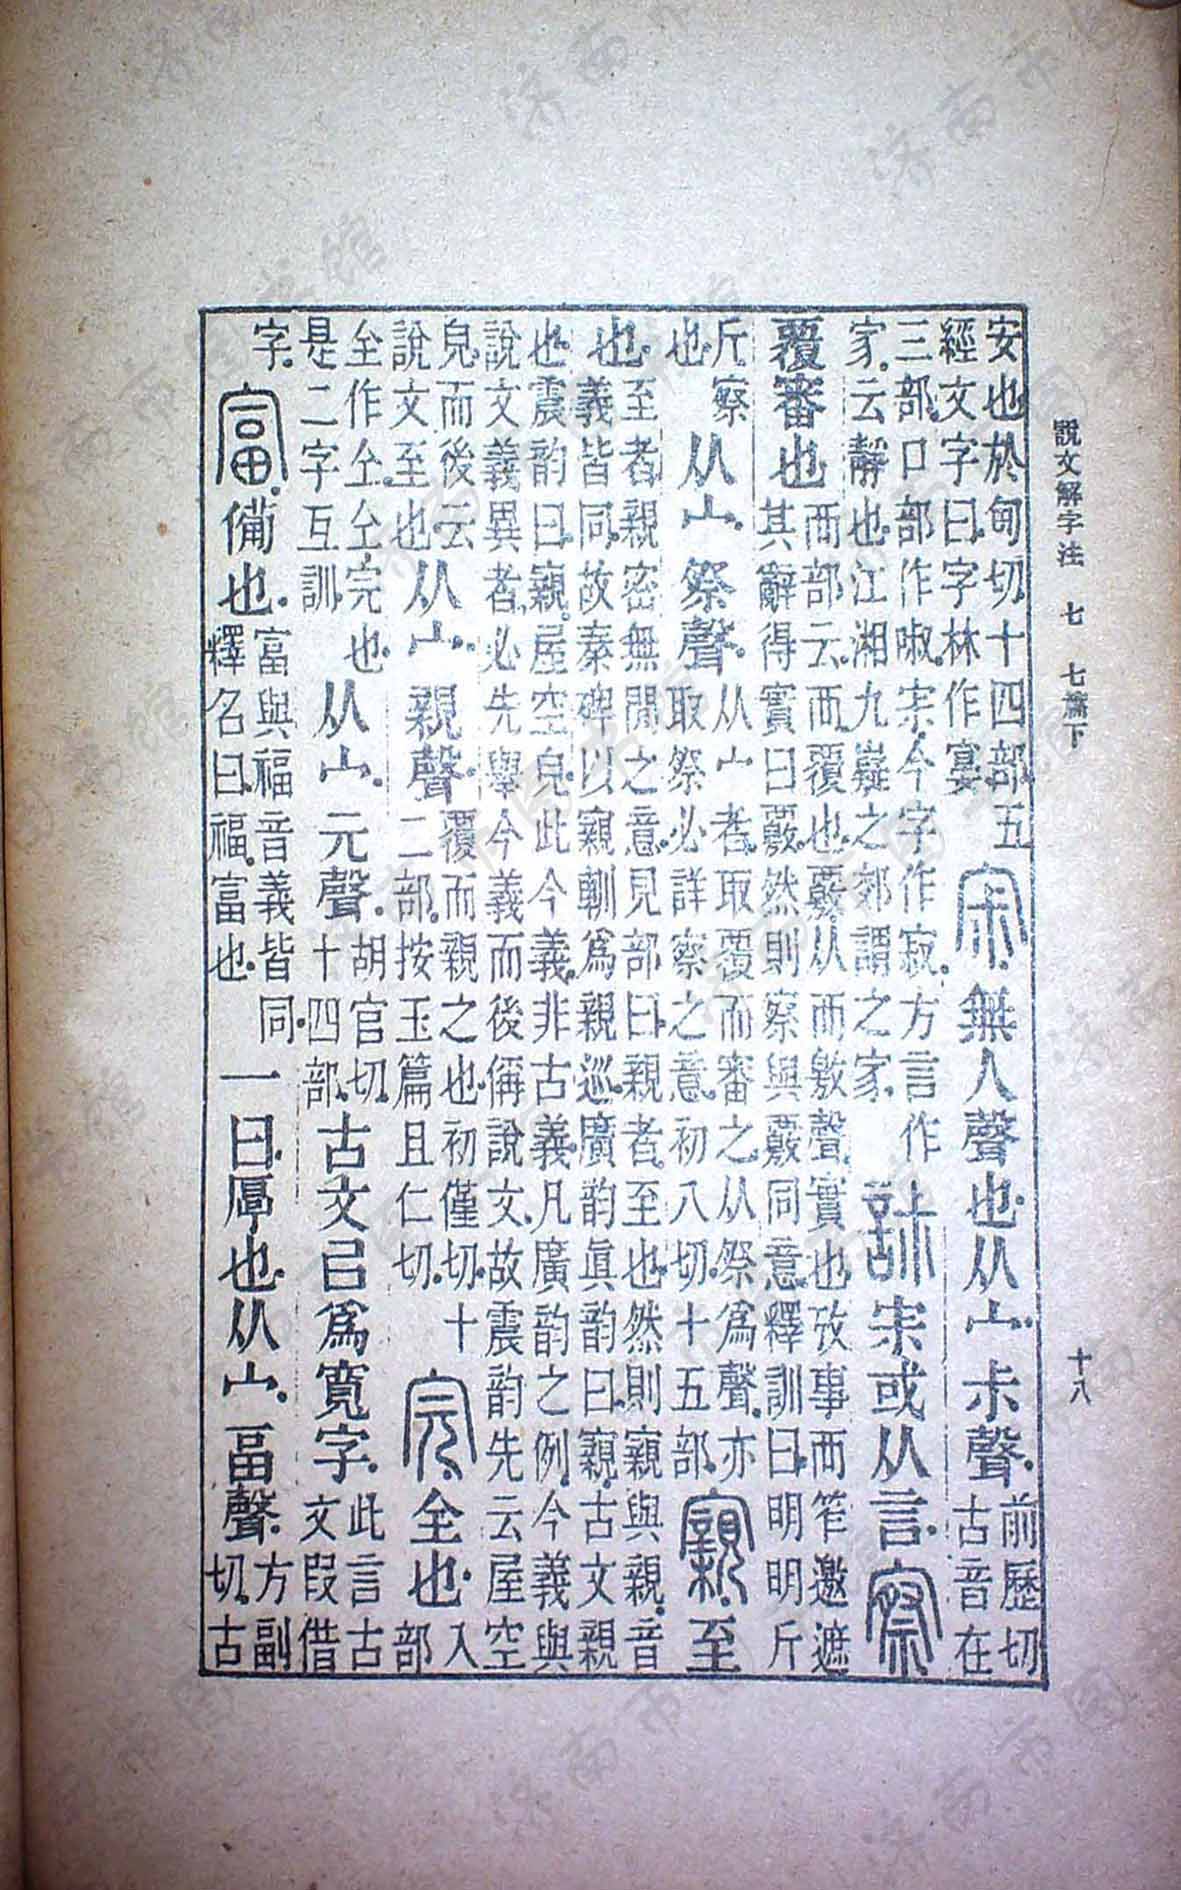 說文解字注 七 七篇下 十八
安也於甸切十四部五經文字曰字林作宴宋無人聲也从宀尗聲前歷切古音在
三部口部作啾宋今字作寂方言作家云靜也江湘九嶷之郊謂之家宋或从言察
覆審也襾部云襾覆也覈从襾敫聲實也攷事襾笮邀遮其辭得實曰覈然則察與覈同意釋訓曰明明斤
斤察也从宀祭聲从宀者取覆而審之从祭爲聲亦取祭必詳察之意初八切十五部寴至
也至者親密無閒之意見部曰親者至也然則寴與親音義皆同故秦碑以寴𨊠爲親巡廣韵眞韵曰寴古文親
也震韵曰寴屋空皃此今義非古義凡廣韵之例今義與說文義異者必先舉今義而後偁說文故震韵先云屋空
皃而後云說文至也从宀親聲覆而親之也初僅切十二部按玉篇且仁切完全也入部
仝作仝仝完也是二字互訓从宀元聲胡官切十四部古文㠯爲寬字此言古文叚借
字富備也富與福音義皆同釋名曰福富也一曰厚也从宀畐聲方副切古